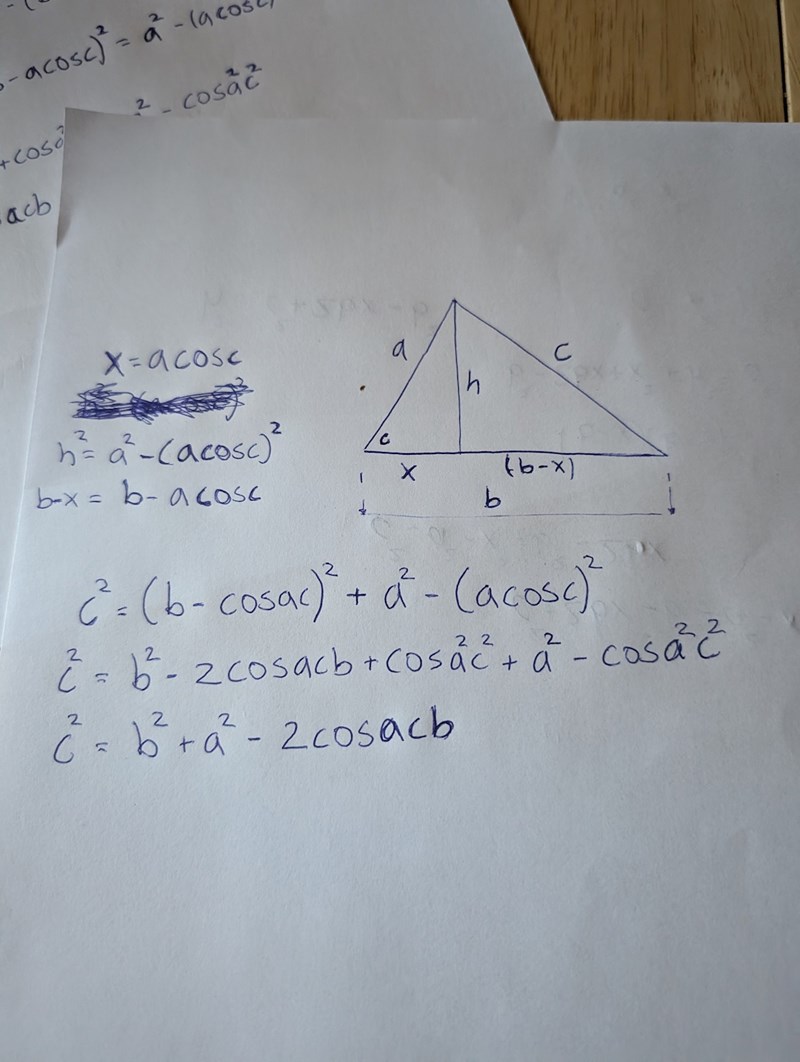 -acosc)² = a² - (acosc)
² - cosa²c²
+cosa²
acb
x = acosc
h² = a² - (acosc)²
b-x = b - acosc
a
c
h
c
x
(b-x)
b
c² = (b - cosac)² + a² - (acosc)²
c² = b² - 2cosacb + cosa²c² + a² - cosa²c²
c² = b² + a² - 2cosacb